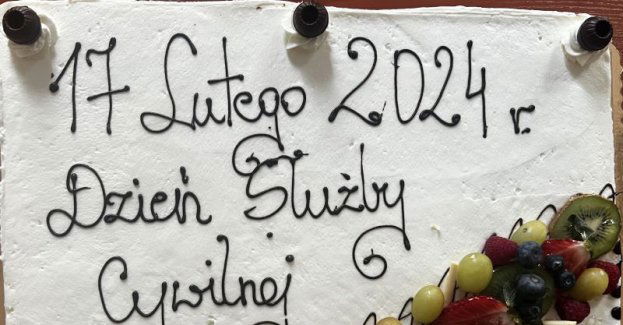 17 Lutego 2024 r.
Dzień Służby
Cywilnej